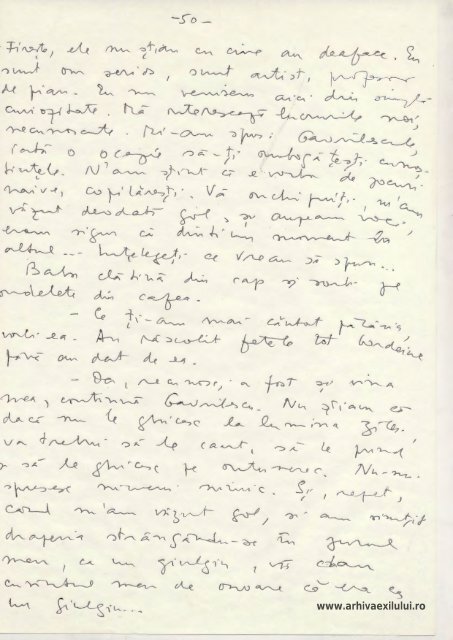 -50-
Firește, ele nu știau cu cine au deaface. Eu
sunt om serios, sunt artist, profesor
de pian. Eu nu venisem aici din simplă
curiozitate. Mă interesează lucrurile noi,
necunoscute. Mi-am spus: Gavrilescule,
iată o ocazie să-ți îmbogățești cunoș-
tințele. N'am știut că e vorba de jocuri
naive, copilărești. Vă închipuiți, m'am
văzut deodată gol, și auzeam voci,
eram sigur că dintr'un moment la
altul... Înțelegeți ce vream să spun...
Baba clătină din cap și sorbi pe
îndelete din cafea.
- Ce ți-am mai căutat pălăria,
vorbi ea. Au răscolit fetele tot bordeiul
până au dat de ea.
- Da, recunosc, a fost și vina
mea, continuă Gavrilescu. Nu știam că
dacă nu le ghicesc la lumina zilei,
va trebui să le caut, să le prind
și să le ghicesc pe întuneric. Nu-mi
spusese nimeni nimic. Și, repet,
când m'am văzut gol, și am simțit
draperia strângându-se în jurul
meu, ca un giulgiu, vă dau
cuvântul meu de onoare că era ca
un giulgiu...
www.arhivaexilului.ro